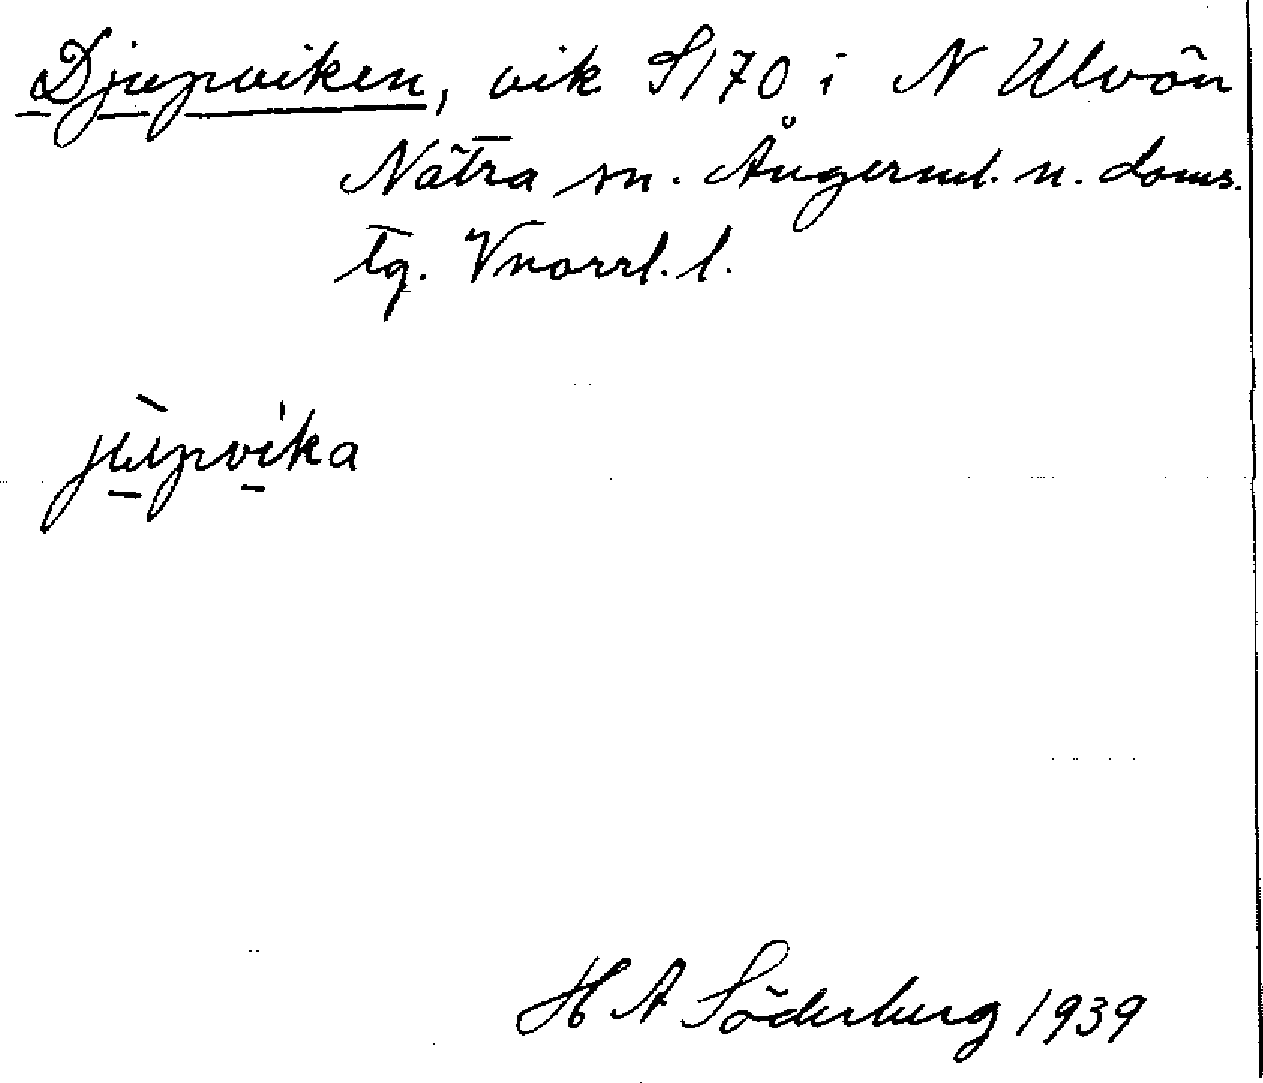 Djupviken, vik S170 i N Ulvön
Nätra sn. Ångerml. n. doms.
tg. Vnorrl. l.
jupvika
H A Söderberg 1939